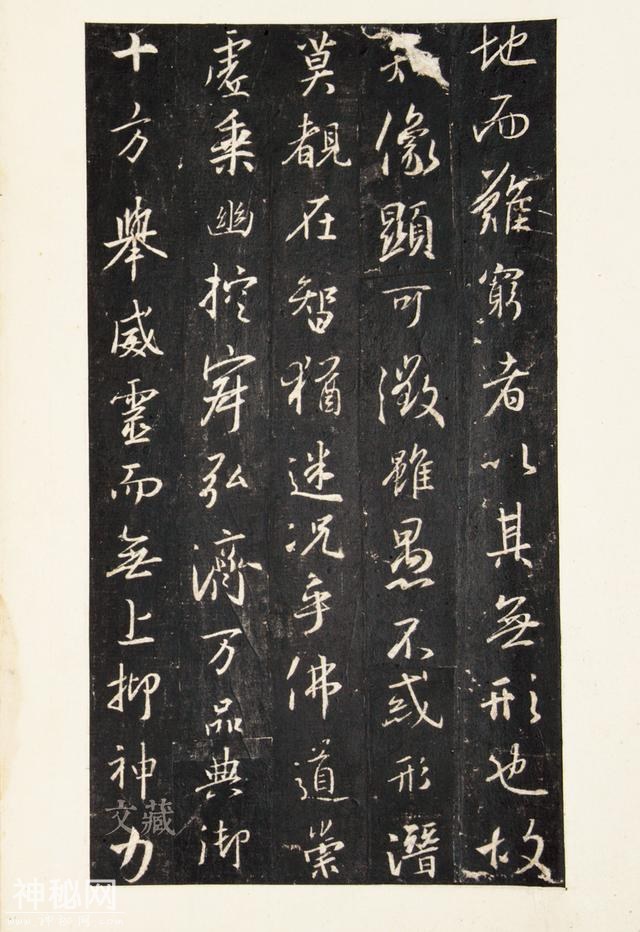 地而難窮者以其無形也故
像顯可徵雖愚不惑形潛
莫覩在智猶迷況乎佛道崇
虛乘幽控寂弘濟万品典御
十方舉威靈而無上抑神力
文藏
神秘网